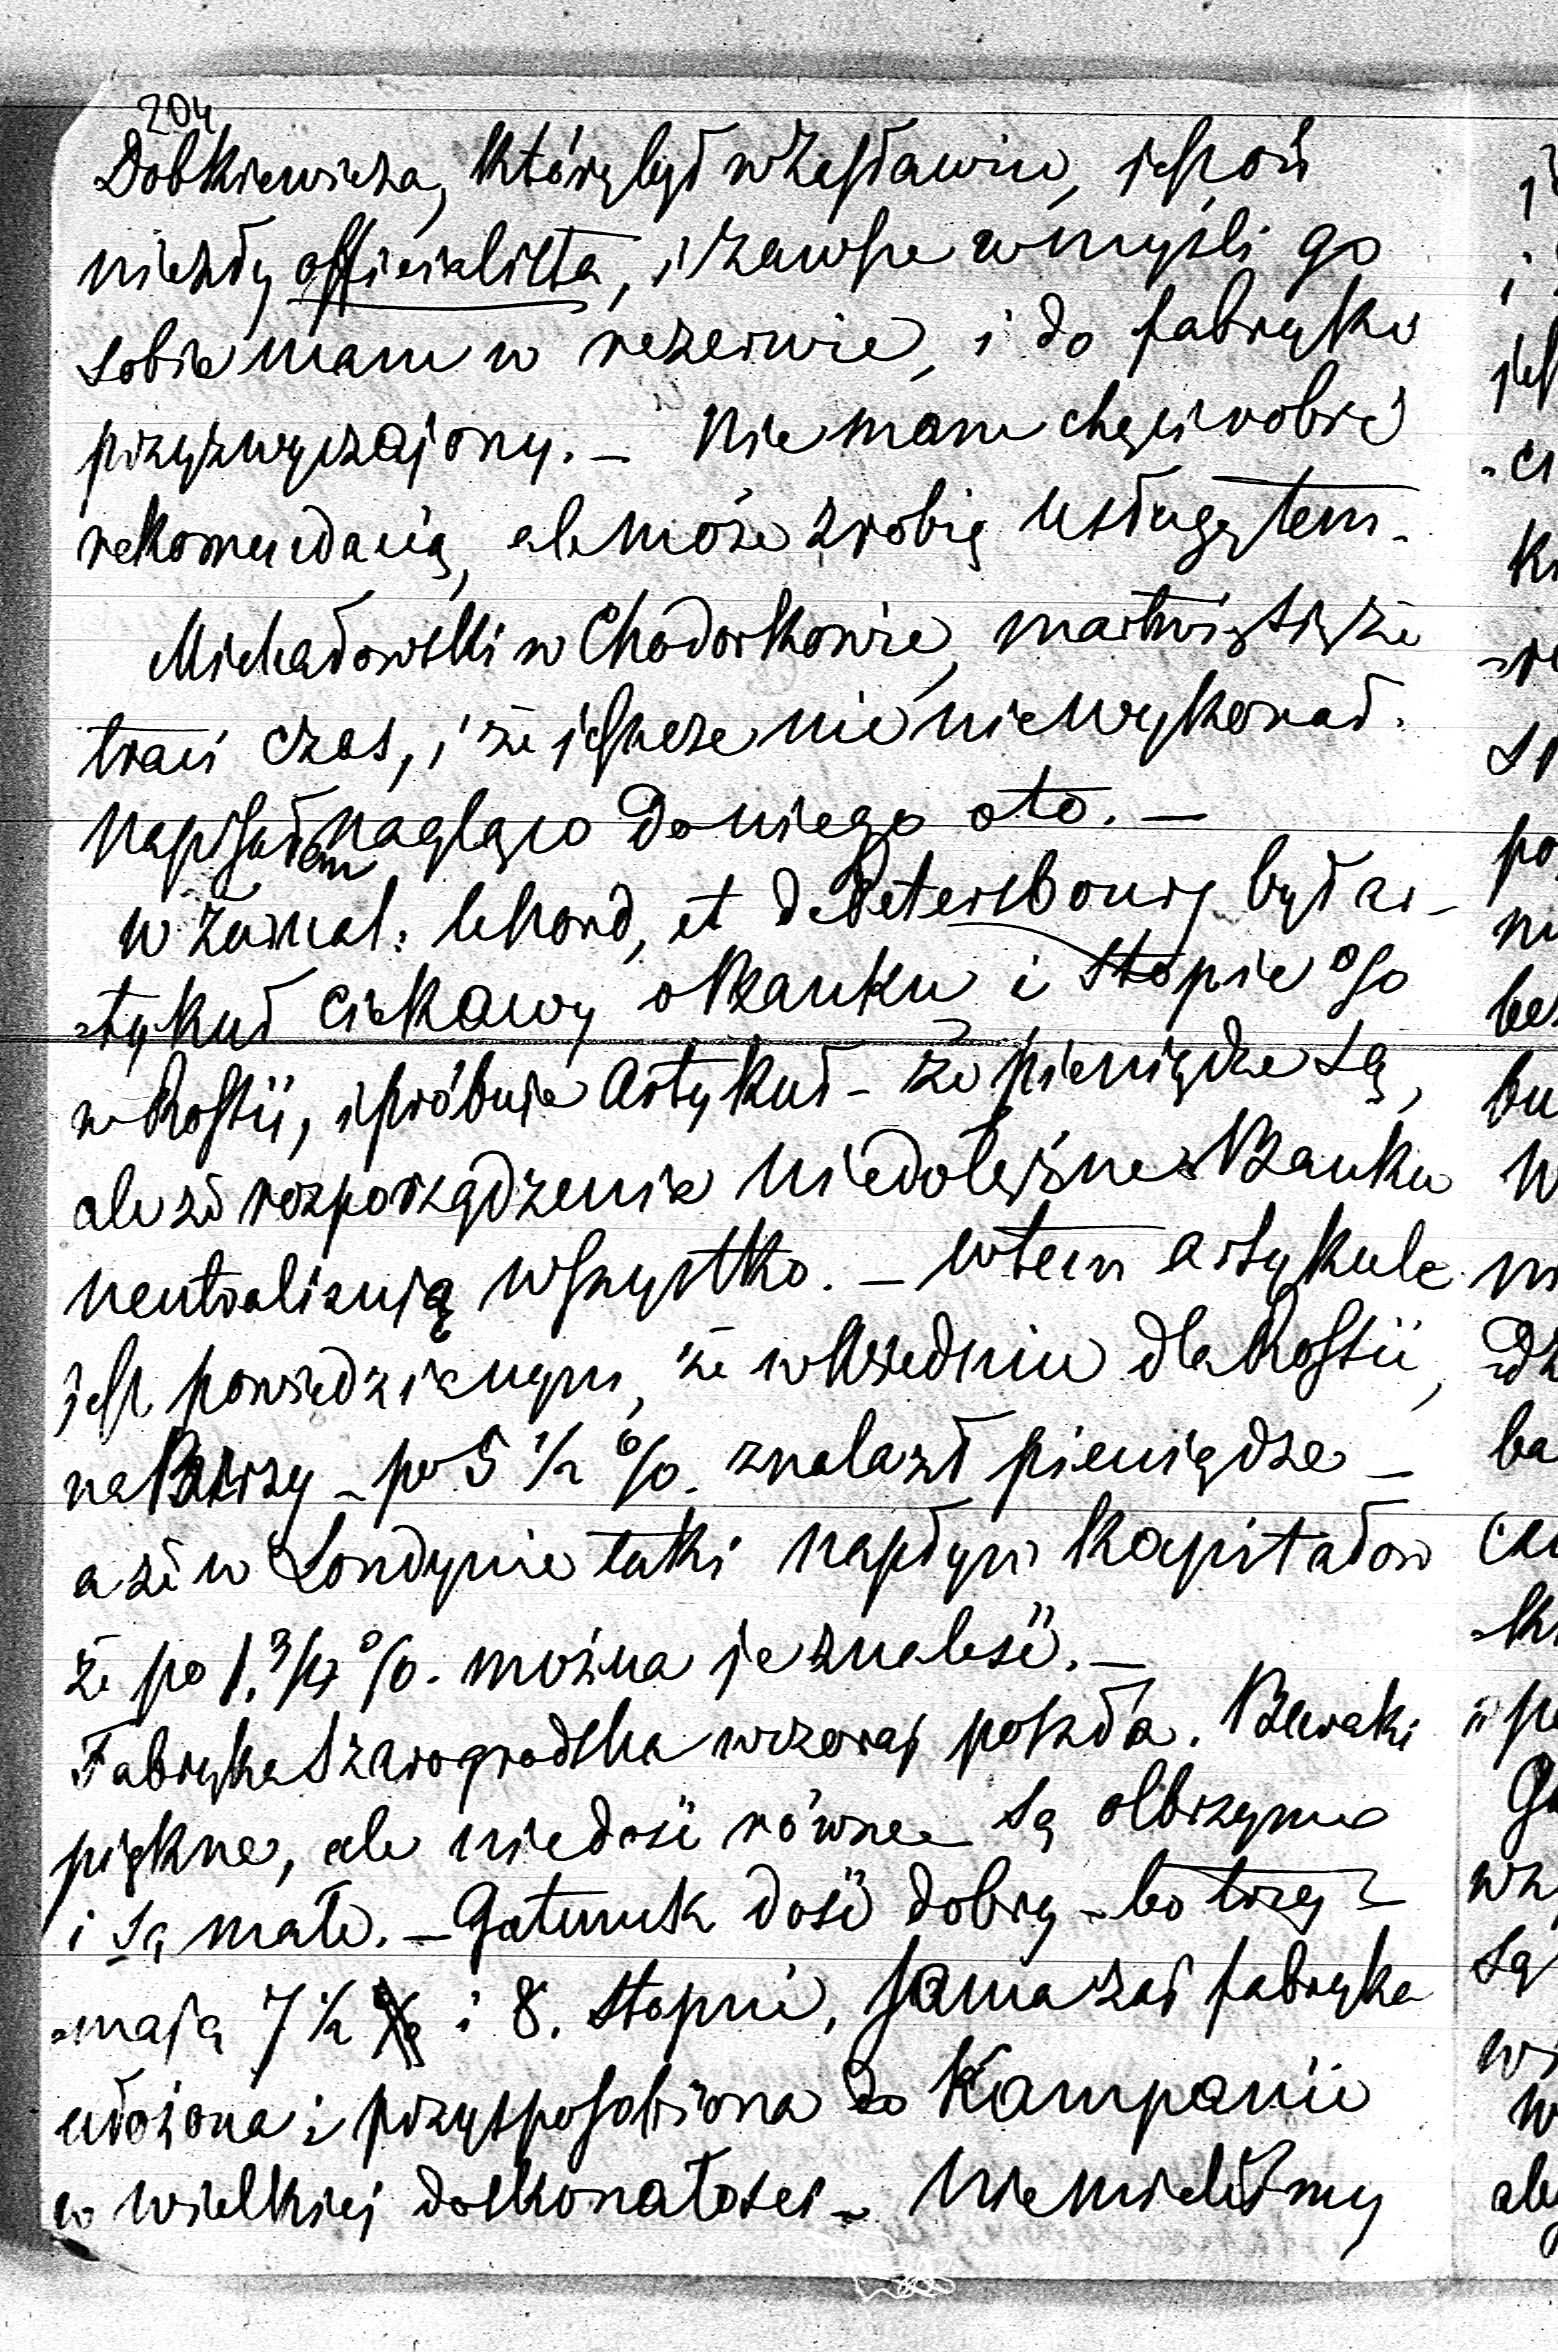 204
Dobkiewicza, który był w Zasławiu, jest on
niezły officialista, i zawsze w myśli go
sobie mam w rezerwie, i do fabryki
przyzwyczajony. – Nie mam chęci robić
rekomendacią, ale może zrobię usługę tem.
Michałowski w Chodorkowie, martwię się że
traci czas, i że jeszcze nic nie wykonał.
Napisałem nagląco do niego oto. –
w Żurnal: le Nord, et de Petersbourg był ar-
-tykuł ciekawy o Banku i stopie %
w Rossii, i próbuje Artykuł – że pieniądze są,
ale że rozporządzenie niedołężne Banku
neutralizują wszystko. – w tem artykule
jest powiedzianym, że w Wiedniu dla Rossii,
na – po 5 ½ %. znalazł pieniądze –
a że w Londynie taki napływ kapitałow
że po 1. ¾ %. można je znaleść. –
Fabryka Szarogrodzka wczoraj poszła. Buraki
piękne, ale nie dość równe – są olbrzymie
i są małe. – Gatunek dość dobry – bo trzy-
-mają 7 ½ i 8. stopni, sama zaś fabryka
ułożona i przysposobiona do Kampanii
w wielkiej doskonałości – Nie mieliśmy